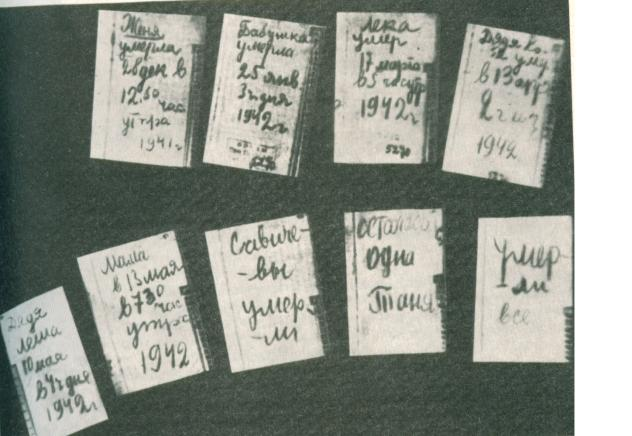 Женя
умерла
28 дек в
12.50 час
утра
1941 г
Бабушка
умерла
25 янв.
3 ч дня
1942 г.
Лека
умер
17 марта
в 5 час утр
1942 г
5270
Дядя
в 13 апр
2 ч
1942
Дядя
Леша
10 мая
в 4 ч дня
1942 г
Мама
в 13 мая
в 7.30
час
утра
1942
Савиче-
-вы
умер-
-ли
умер-
-ли
все
осталась
одна
Таня